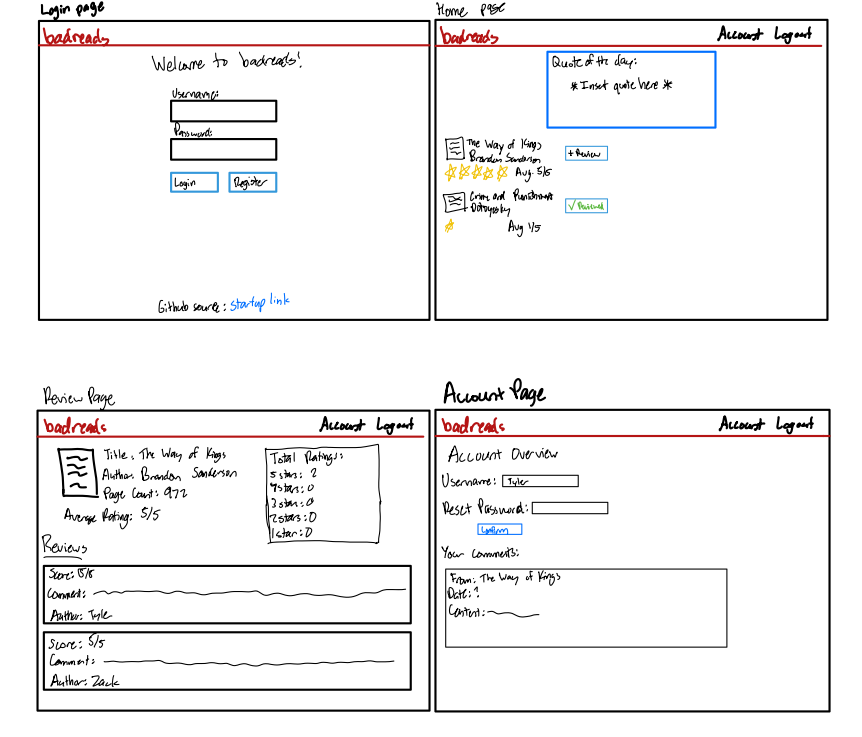 Login page
badreads
Welcome to badreads!
Username:
Password:
Login
Register
Github source: startup link
Home page
badreads
Account Logout
Quote of the day:
* Insert quote here *
The Way of Kings
Brandon Sanderson
+ Review
Avg. 5/5
Crime and Punishment
✓ Reviewed
Avg 1/5
Review Page
badreads
Account Logout
Title: The Way of Kings
Author: Brandon Sanderson
Page Count: 972
Average Rating: 5/5
Total Ratings:
5 stars: 2
4 stars: 0
3 stars: 0
2 stars: 0
1 star: 0
Reviews
Score: 5/5
Comment:
Author: Tyler
Score: 5/5
Comment:
Author: Zack
Account Page
badreads
Account Logout
Account Overview
Username: Tyler
Reset Password:
Confirm
Your Comments:
From: The Way of Kings
Date: ?
Content: